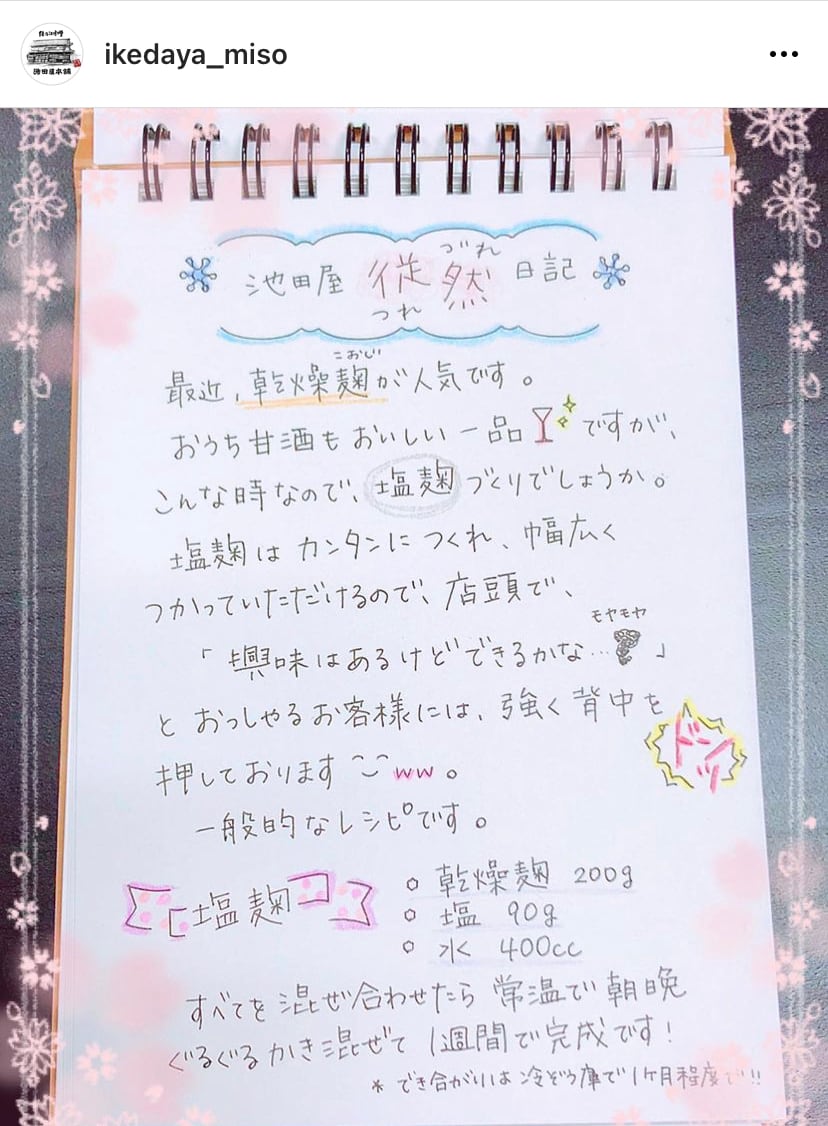 ikedaya_miso
池田屋本舗
づれ
池田屋 従然 日記
つれ
こおじ
最近、乾燥麹が人気です。
おうち甘酒もおいしい一品ですが、
こんな時なので、塩麹づくりでしょうか。
塩麹はカンタンにつくれ、幅広く
つかっていただけるので、店頭で、
モヤモヤ
「興味はあるけどできるかな…」
とおっしゃるお客様には、強く背中を
ドンッ
押しておりますww。
一般的なレシピです。
塩麹
○ 乾燥麹 200g
○ 塩 90g
○ 水 400cc
すべてを混ぜ合わせたら常温で朝晩
ぐるぐるかき混ぜて1週間で完成です!
* でき合がりは冷ぞう庫で1ヶ月程度で!!